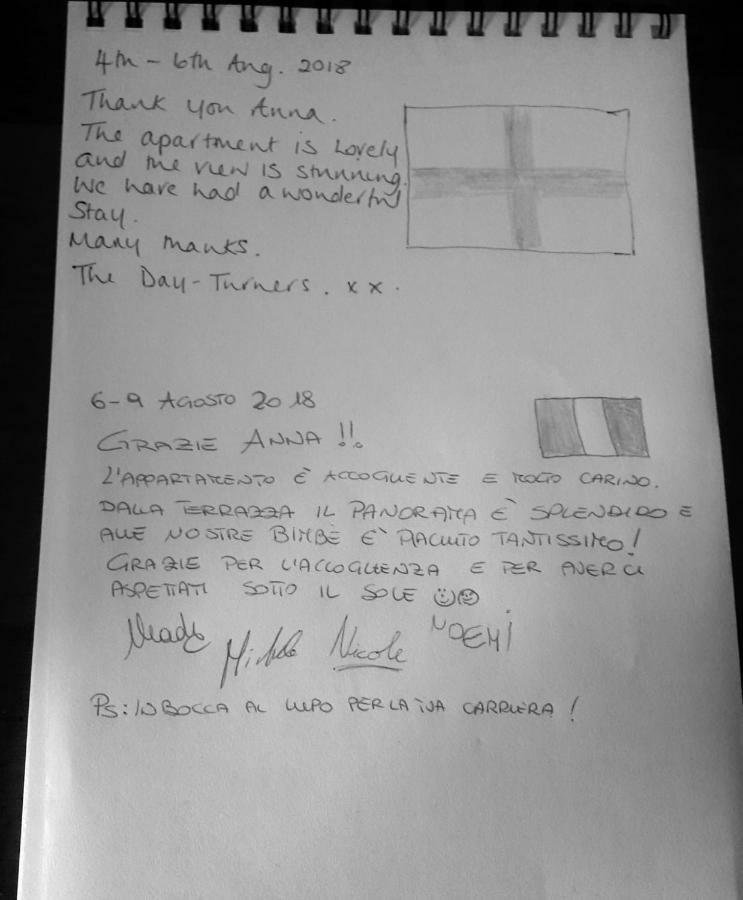 4th - 6th Aug. 2018
Thank you Anna.
The apartment is lovely
and the view is stunning.
We have had a wonderful
stay.
Many thanks.
The Day-Turners. x x.
6-9 AGOSTO 2018
GRAZIE ANNA !!.
L'APPARTAMENTO È ACCOGLIENTE E MOLTO CARINO.
DALLA TERRAZZA IL PANORAMA E' SPLENDIDO E
ALLE NOSTRE BIMBE E' PIACIUTO TANTISSIMO!
GRAZIE PER L'ACCOGLIENZA E PER AVERCI
ASPETTATI SOTTO IL SOLE ☺☺
Michele Nicole NOEMI
PS: IN BOCCA AL LUPO PER LA TUA CARRIERA !